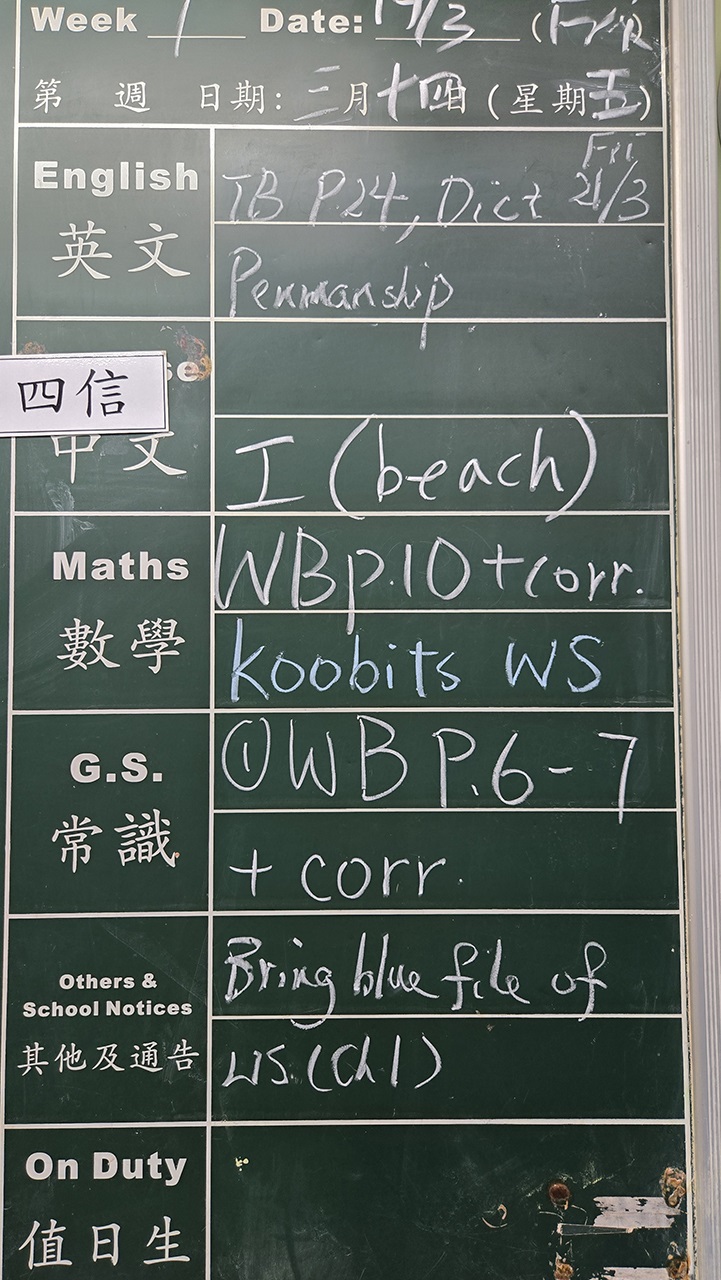 Week 1 Date: 14/3 (Fri)
第 週 日期: 三月十四日 (星期五)
English
英文
Fri
TB P.24, Dict 21/3
Penmanship
四信
se
中文
I (beach)
Maths
數學
WB p.10 + corr.
koobits WS
G.S.
常識
① WB P.6-7
+ corr.
Others &
School Notices
其他及通告
Bring blue file of
WS (ch 1)
On Duty
值日生